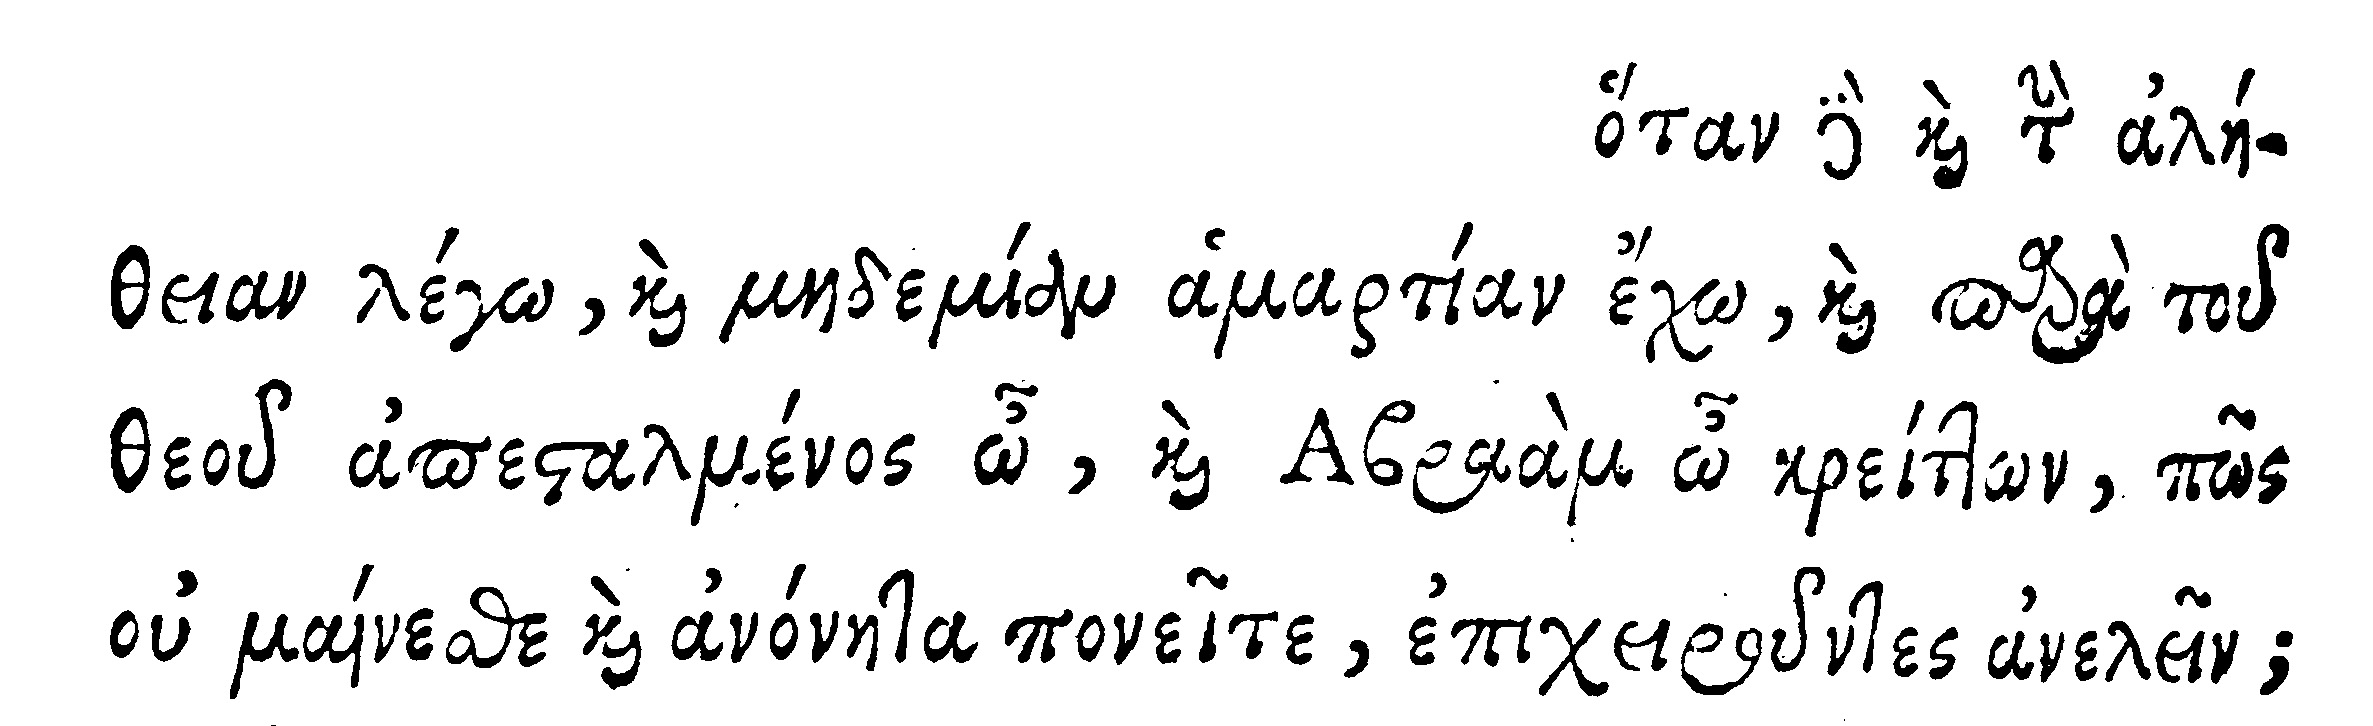 ὅταν δὲ καὶ τὴν ἀλή-
θειαν λέγω, καὶ μηδεμίαν ἁμαρτίαν ἔχω, καὶ παρὰ τοῦ
θεοῦ ἀπεσταλμένος ὦ, καὶ Αβραὰμ ὦ κρείτλων, πῶς
οὐ μαίνεσθε καὶ ἀνόνητα πονεῖτε, ἐπιχειροῦντες ἀνελεῖν;